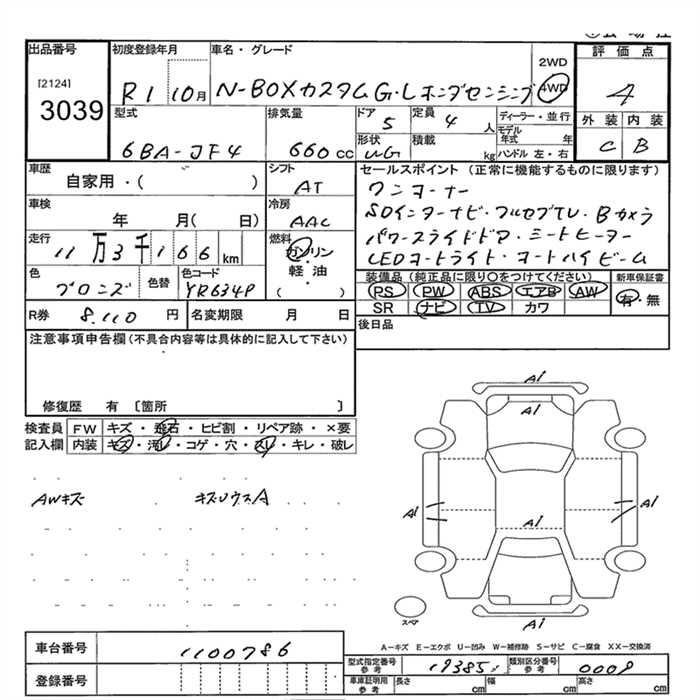 出品番号 初度登録年月 車名・グレード 評価点
[2124]
3039
R1 10月 N-BOXカスタムG・Lホンダセンシング 2WD 4WD 4
型式 排気量 ドア 定員 ディーラー・並行 外装 内装
6BA-JF4 660cc 5 4人 モデル年式 年 C B
形状 積載 kg ハンドル 左・右
車歴 シフト セールスポイント (正常に機能するものに限ります)
自家用・( ) AT ワンオーナー
車検 冷房 SDインターナビ・フルセグTV・Bカメラ
年 月( 日) AAC パワースライドドア・シートヒーター
走行 燃料 LEDオートライト・オートハイビーム
11万3千166km ガソリン
軽・油
( )
色 色替 色コード 装備品 (純正品に限り○をつけてください) 新車保証書
ブロンズ YR634P PS PW ABS エアB AW 有・無
SR ナビ TV カワ
R券 8,110円 名変期限 月 日 後日品
注意事項申告欄(不具合内容等は具体的に記入して下さい)
修復歴 有 〔箇所 〕
検査員 FW キズ・飛石・ヒビ割・リペア跡・×要
記入欄 内装 キズ・汚レ・コゲ・穴・スレ・キレ・破レ
AWキズ キズ
A1
A1
A1 A1
A1
A1
スペア
A-キズ E-エクボ U-凹み W-補修跡 S-サビ C-腐食 XX-交換済
車台番号 1100786
型式指定番号 参考 19385 類別区分番号 参考 0009
登録番号 車庫証明用 参考 長さ cm 幅 cm 高さ cm